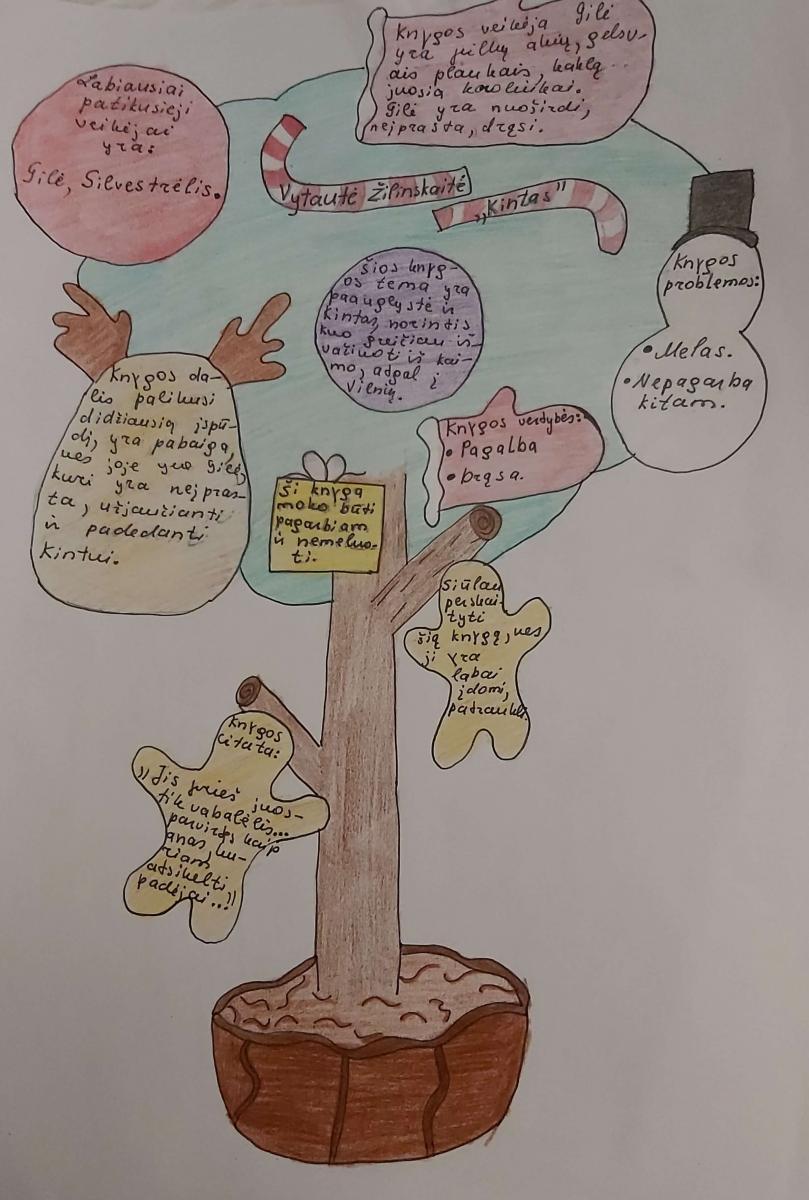 Knygos veikėja Gilė
yra pilkų akių, gelsv-
ais plaukais, kaklą
juosia karoliukai.
Gilė yra nuoširdi,
neįprasta, drąsi.
Labiausiai
patikusieji
veikėjai
yra:
Gilė, Silvestrėlis.
Vytautė Žilinskaitė
„Kintas"
Šios knyg-
os tema yra
paauglystė ir
Kintas, norintis
kuo greičiau iš-
važiuoti iš kai-
mo, adgal į
Vilnių.
Knygos
problemos:
• Melas.
• Nepagarba
kitam.
Knygos da-
lis palikusi
didžiausią įspū-
dį, yra pabaiga,
nes joje yra Gilė,
kuri yra neįpras-
ta, užjaučianti
ir padedanti
Kintui.
Knygos vertybės:
• Pagalba
• Drąsa.
Ši knyga
moko būti
pagarbiam
ir nemeluo-
ti.
Siūlau
perskai-
tyti
šią knygą, nes
ji yra
labai
įdomi,
patraukli.
Knygos
citata:
„Jis prieš juos-
tik vabalėlis...
parvirtęs kaip
anas, ku-
riam
atsikelti
padėjai...!"